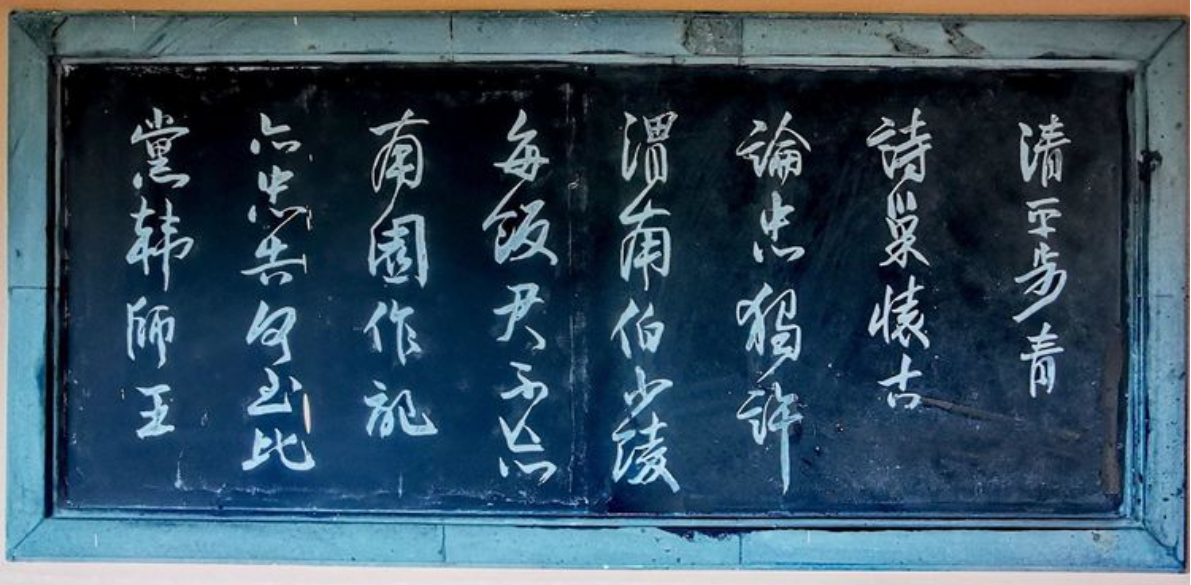 清平步青
詩巢懷古
論忠獨許
渭南伯少陵
每飯君不忘
南園作記
亦忠告何至比
黨韓師王